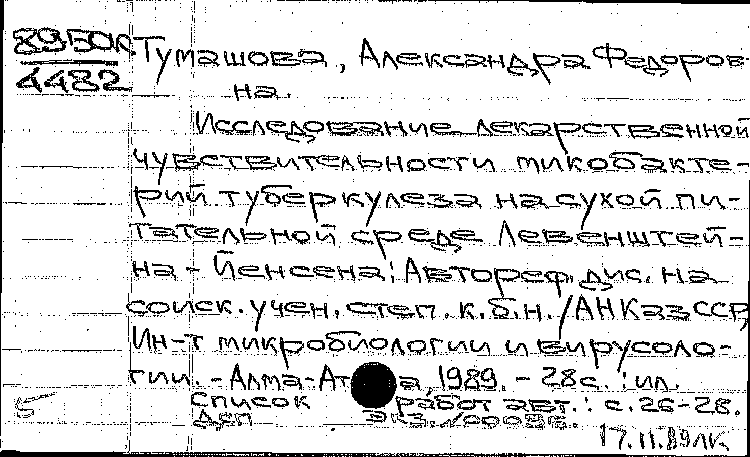 89-5012
4482
Тумашова, Александра Федоров-
на.
Исследование лекарственной
чувствительности микобакте-
рий туберкулеза на сухой пи-
тательной среде Левенштей-
на-Йенсена: Автореф. дис. на
соиск. учен. степ. к.б.н. / АН КазССР,
Ин-т микробиологии и вирусоло-
гии. - Алма-Ата, 1989. - 28 с. : ил.
Список работ авт.: с. 26-28.
Деп экз.
5
17.11.89